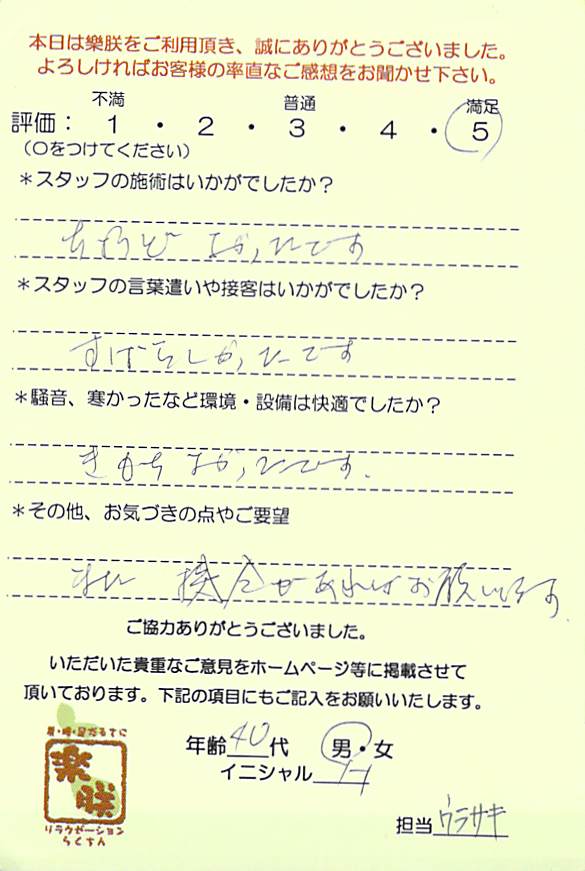 本日は樂朕をご利用頂き、誠にありがとうございました。
よろしければお客様の率直なご感想をお聞かせ下さい。
不満 普通 満足
評価： 1 ・ 2 ・ 3 ・ 4 ・ 5
（○をつけてください）
＊スタッフの施術はいかがでしたか？
ちょうど よかったです
＊スタッフの言葉遣いや接客はいかがでしたか？
すばらしかったです
＊騒音、寒かったなど環境・設備は快適でしたか？
きもちよかったです.
＊その他、お気づきの点やご要望
また 機会があればお願いします
ご協力ありがとうございました。
いただいた貴重なご意見をホームページ等に掲載させて
頂いております。下記の項目にもご記入をお願いいたします。
年齢 40 代 男・女
イニシャル
肩・腰・足だるさに
楽朕
リラクゼーション
らくちん
担当 ウラサキ